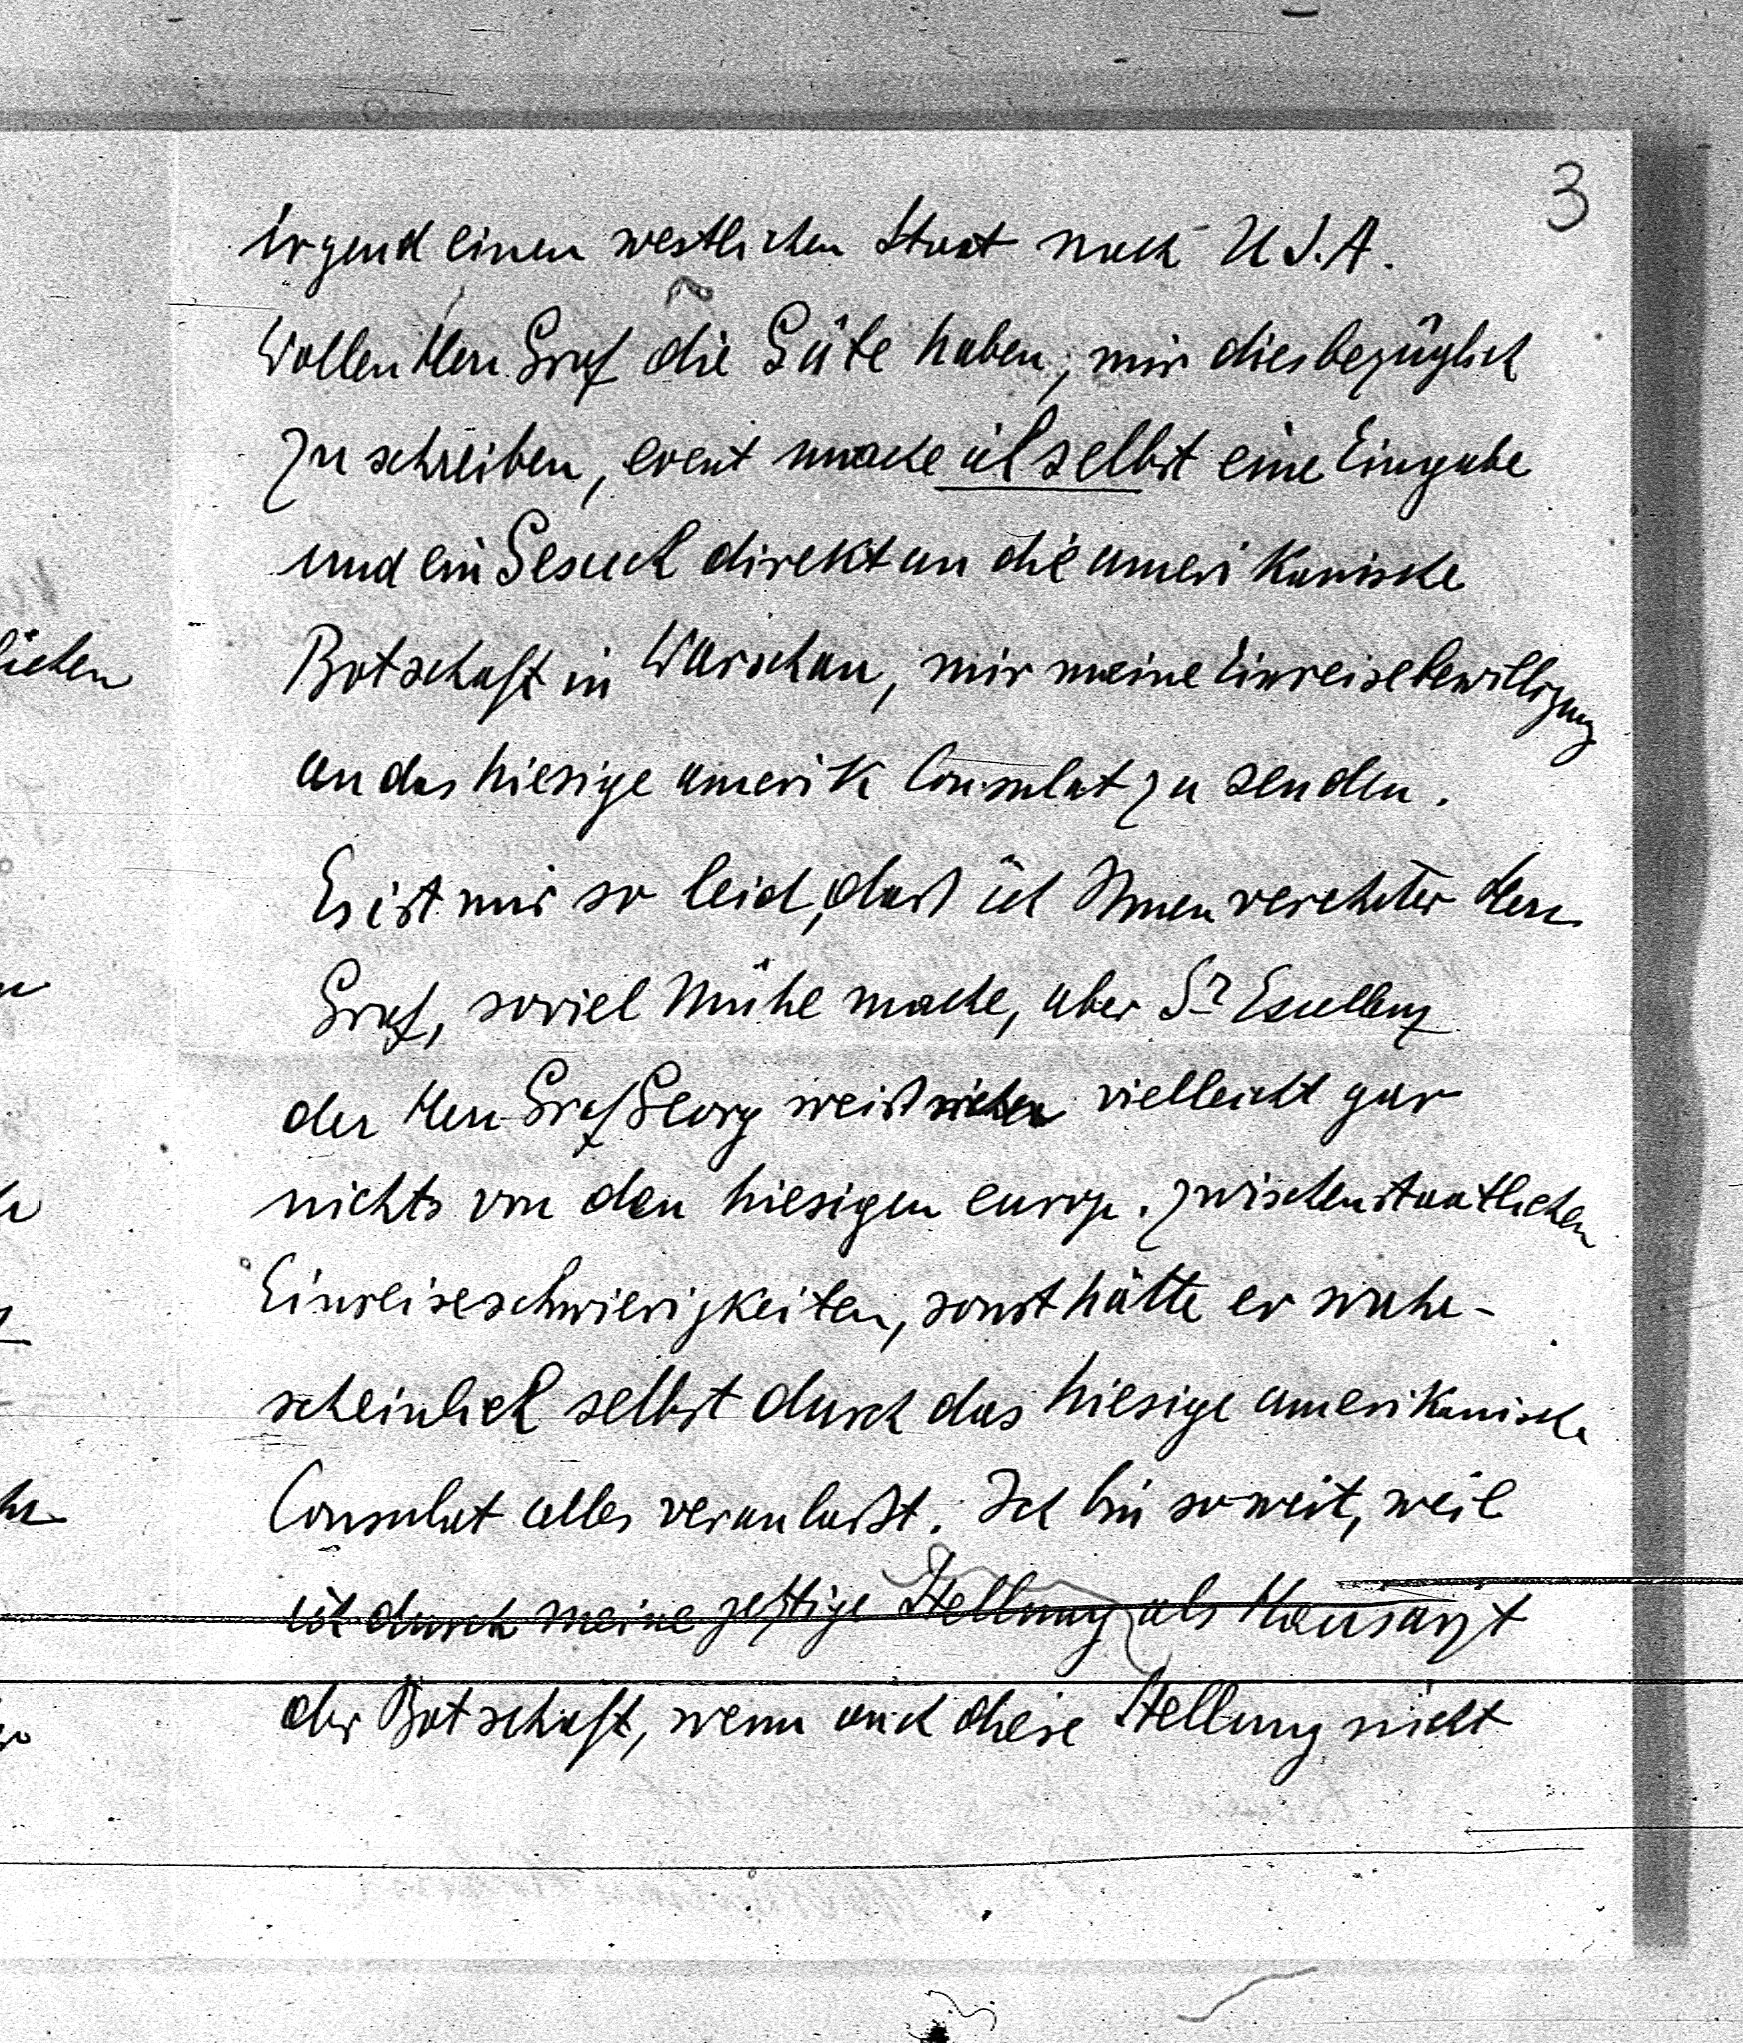 3
irgend einen westlichen Staat nach U.S.A.
Wollen Herr Graf die Güte haben, mir diesbezüglich
zu schreiben, event mache ich selbst eine Eingabe
und ein Gesuch direkt an die amerikanische
Botschaft in Warschau, mir meine Einreisebewilligung
an das hiesige amerik Consulat zu senden.
Es ist mir so leid, dass ich Ihnen verehrter Herr
Graf, soviel Mühe mache, aber Sr Excellenz
der Herr Graf Georg weist vielleicht gar
nichts von den hiesigen europ. zwischenstaatlichen
Einreiseschwierigkeiten, sonst hätte er wahr-
scheinlich selbst durch das hiesige amerikanische
Consulat alles veranlasst. Ich bin soweit, weil
ich durch meine jetztige Stellung als Hausarzt
der Botschaft, wenn auch diese Stellung nicht